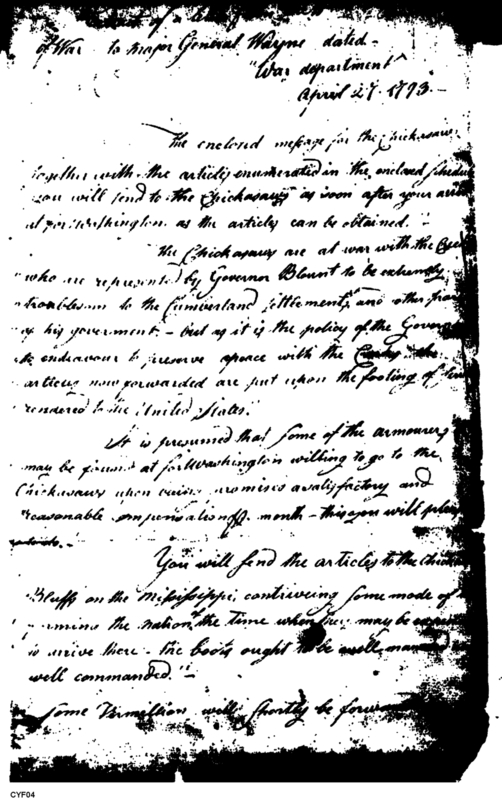 of a
of War to Major General Wayne dated -
"War department
April 27. 1793. -
The enclosed message for the Chickasaws
together with the articles enumerated in the enclosed
you will send to the Chickasaws as soon after your
at fort Washington as the articles can be obtained.
The Chickasaws are at war with the
who are represented by Governor Blount to be extremely
troublesome to the Cumberland settlements and other
of his government. - but as it is the policy of the
to endeavour to preserve a peace with the Creeks the
articles now forwarded are put upon the footing of
rendered to the United States."
It is presumed that some of the armourers
may be found at fort Washington willing to go to the
Chickasaws upon being promised a satisfactory and
reasonable compensation month - this you will please

You will send the articles to the
Bluffs on the Mississippi, contriveing some mode of
the nation of the time when they may be
to arrive there - the boats ought to be well manned
well commanded."
Some Vermillion will shortly be
CYF04